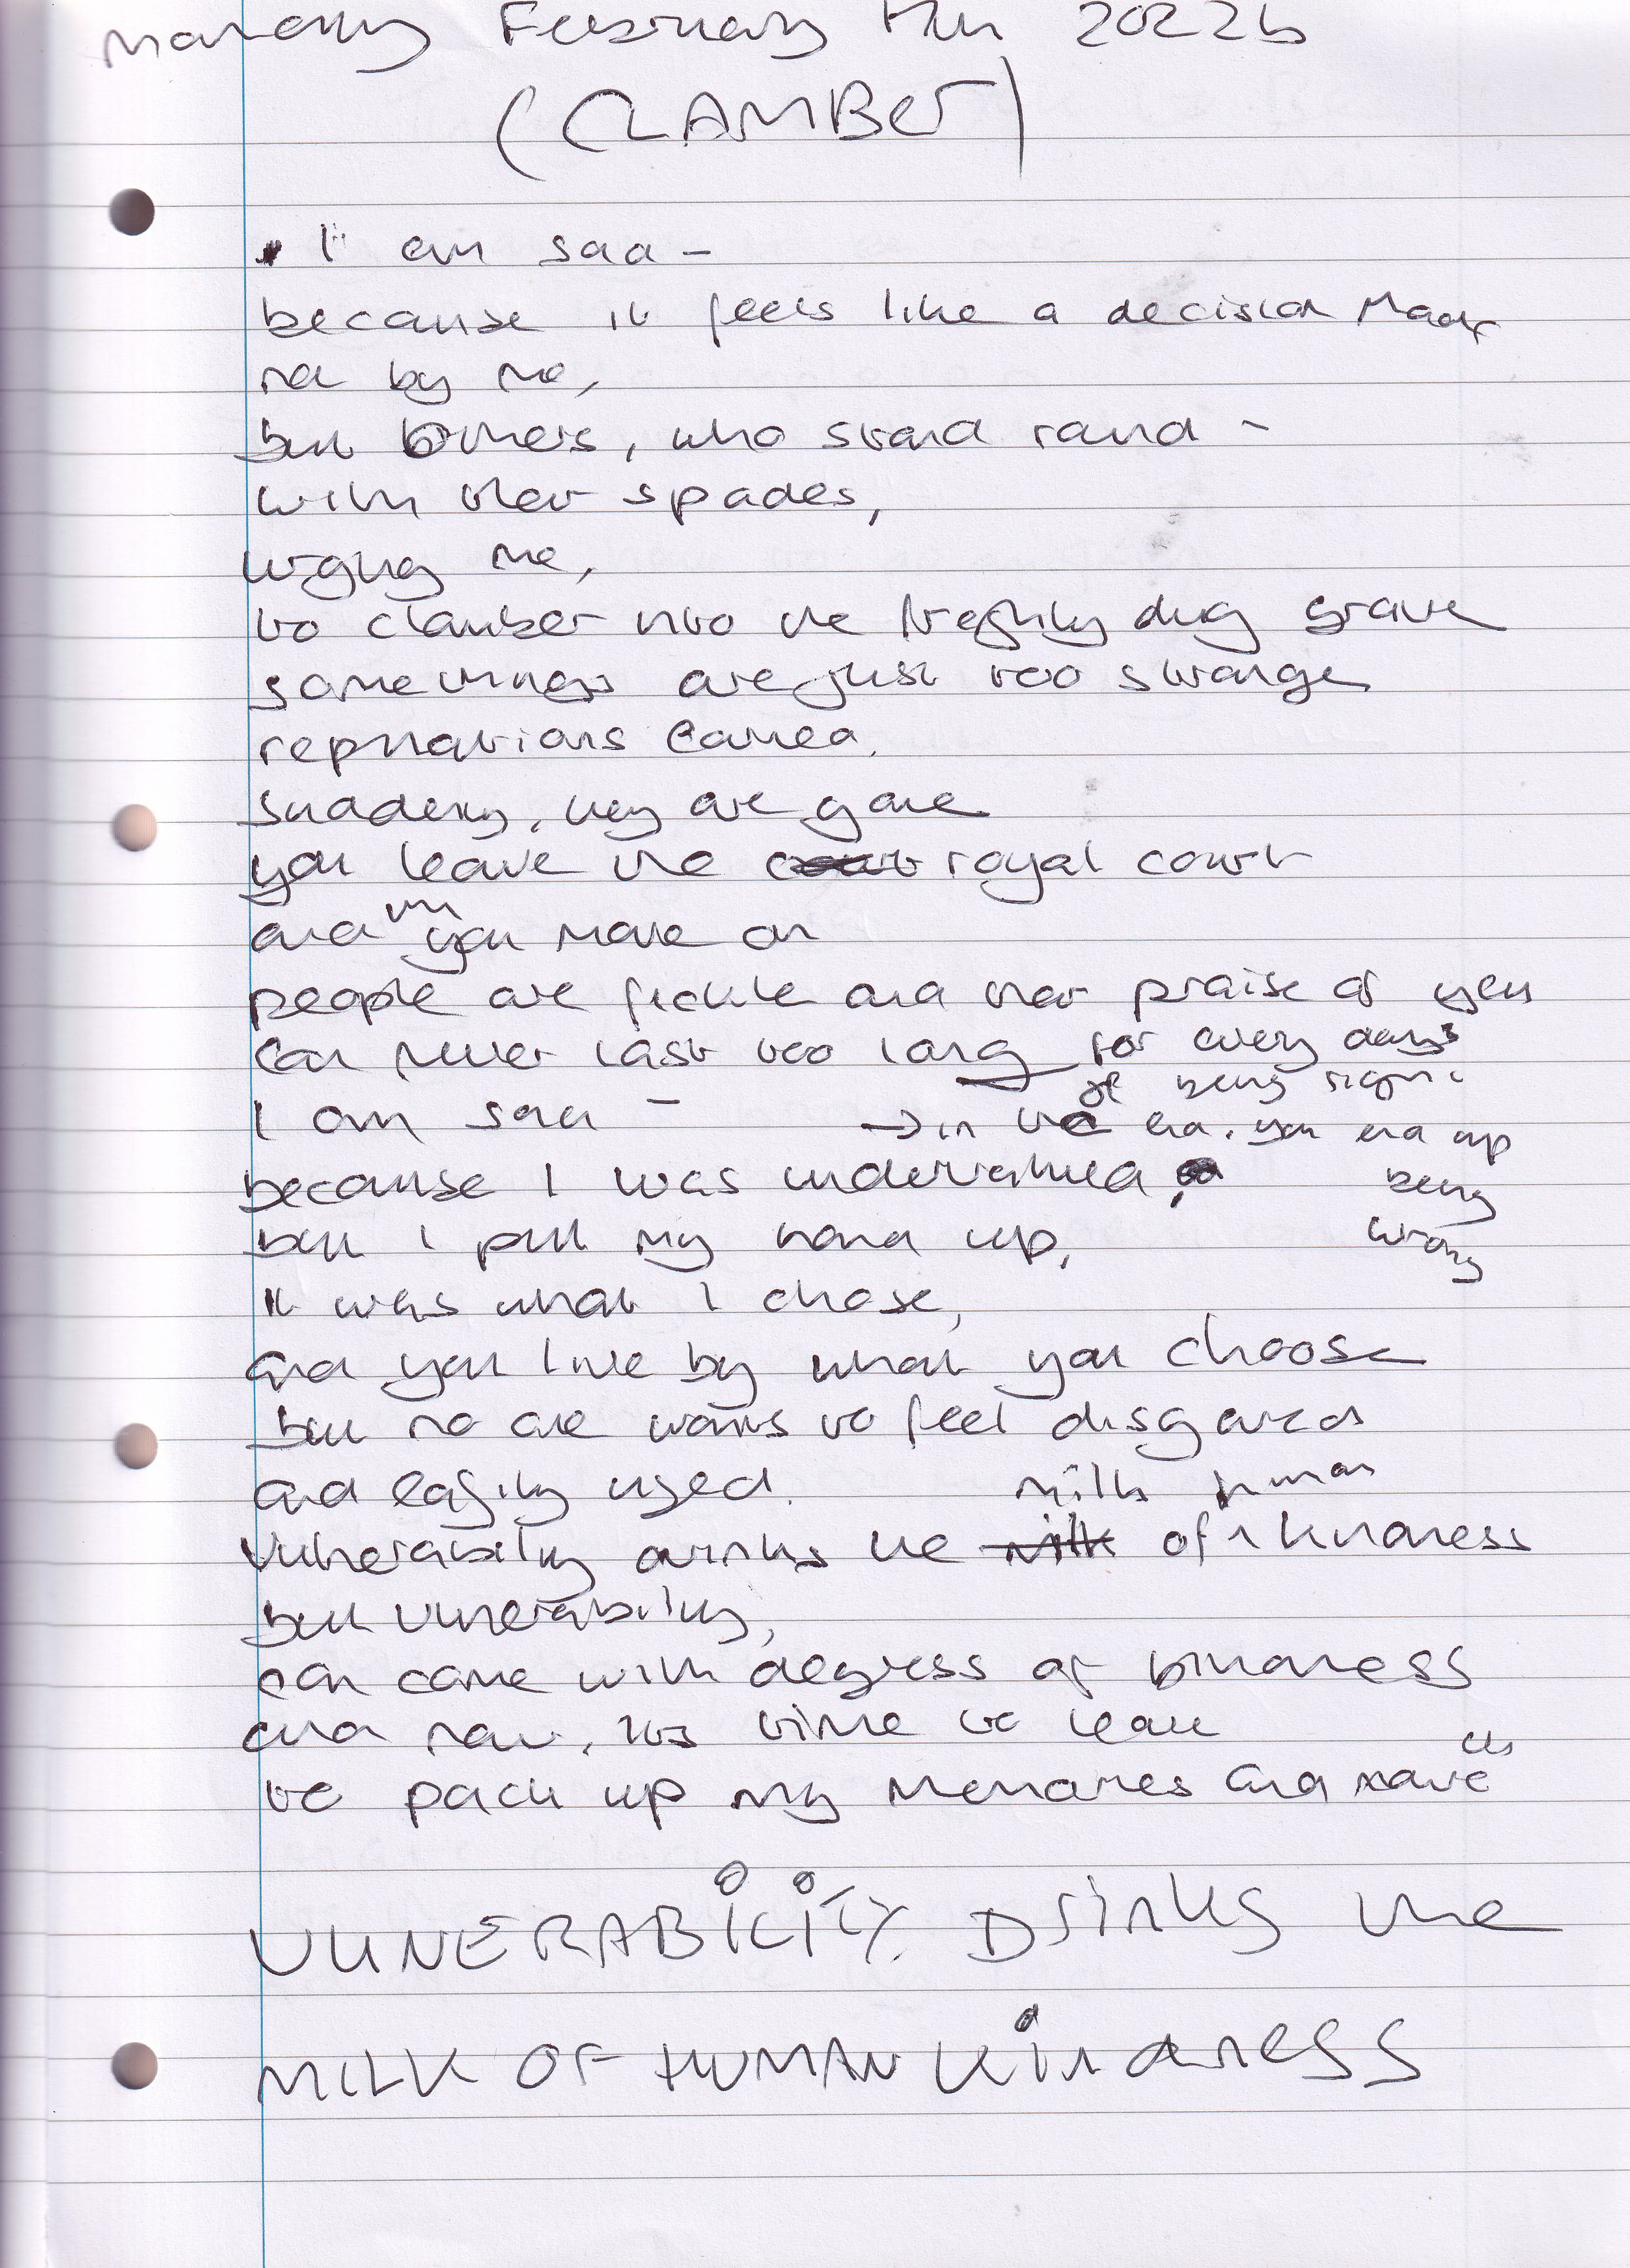 Monday February 7th 2022
(CLAMBER)
I am sad -
because it feels like a decision made
not by me,
but others, who stand round -
with their spades,
urging me,
to clamber into the freshly dug grave
some things are just too strange
reputations earned.
suddenly, they are gone
you leave the royal court
and you move on
people are fickle and their praise of you
can never last too long for every days
of being right
I am sad - → in the end, you end up
because I was undervalued, being
but I put my hand up, wrong
it was what I chose,
and you live by what you choose
but no one wants to feel disgarded
and easily used. milk human
Vulnerability drinks the milk of kindness
but vulnerability,
can come with degress of blindness
and now, its time to leave
to pack up my memories and
VUNERABILITY. Drinks the
MILK OF HUMAN Kindness